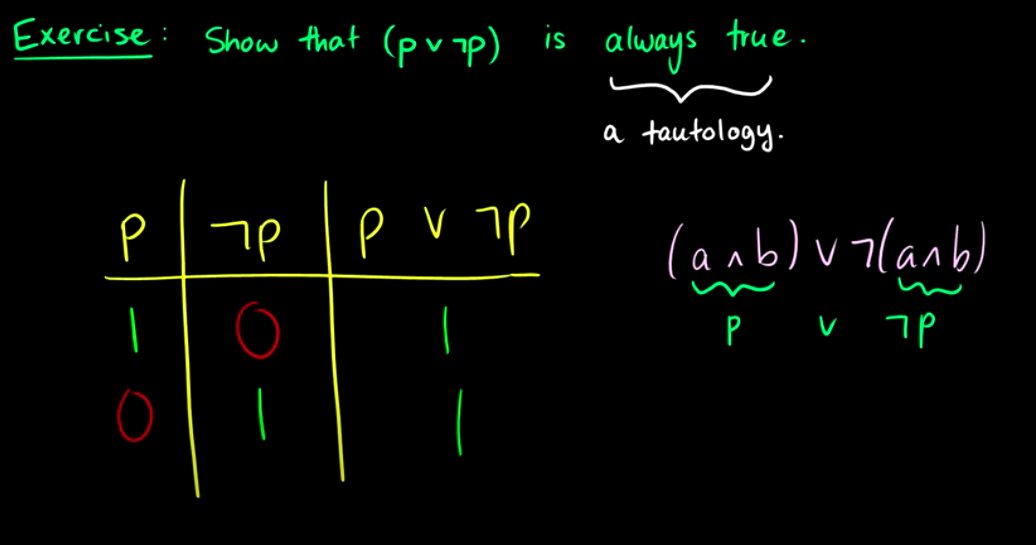 Exercise: Show that (p ∨ ¬p) is always true.
a tautology.
p ¬p p ∨ ¬p
1 0 1
0 1 1
(a ∧ b) ∨ ¬(a ∧ b)
p ∨ ¬p